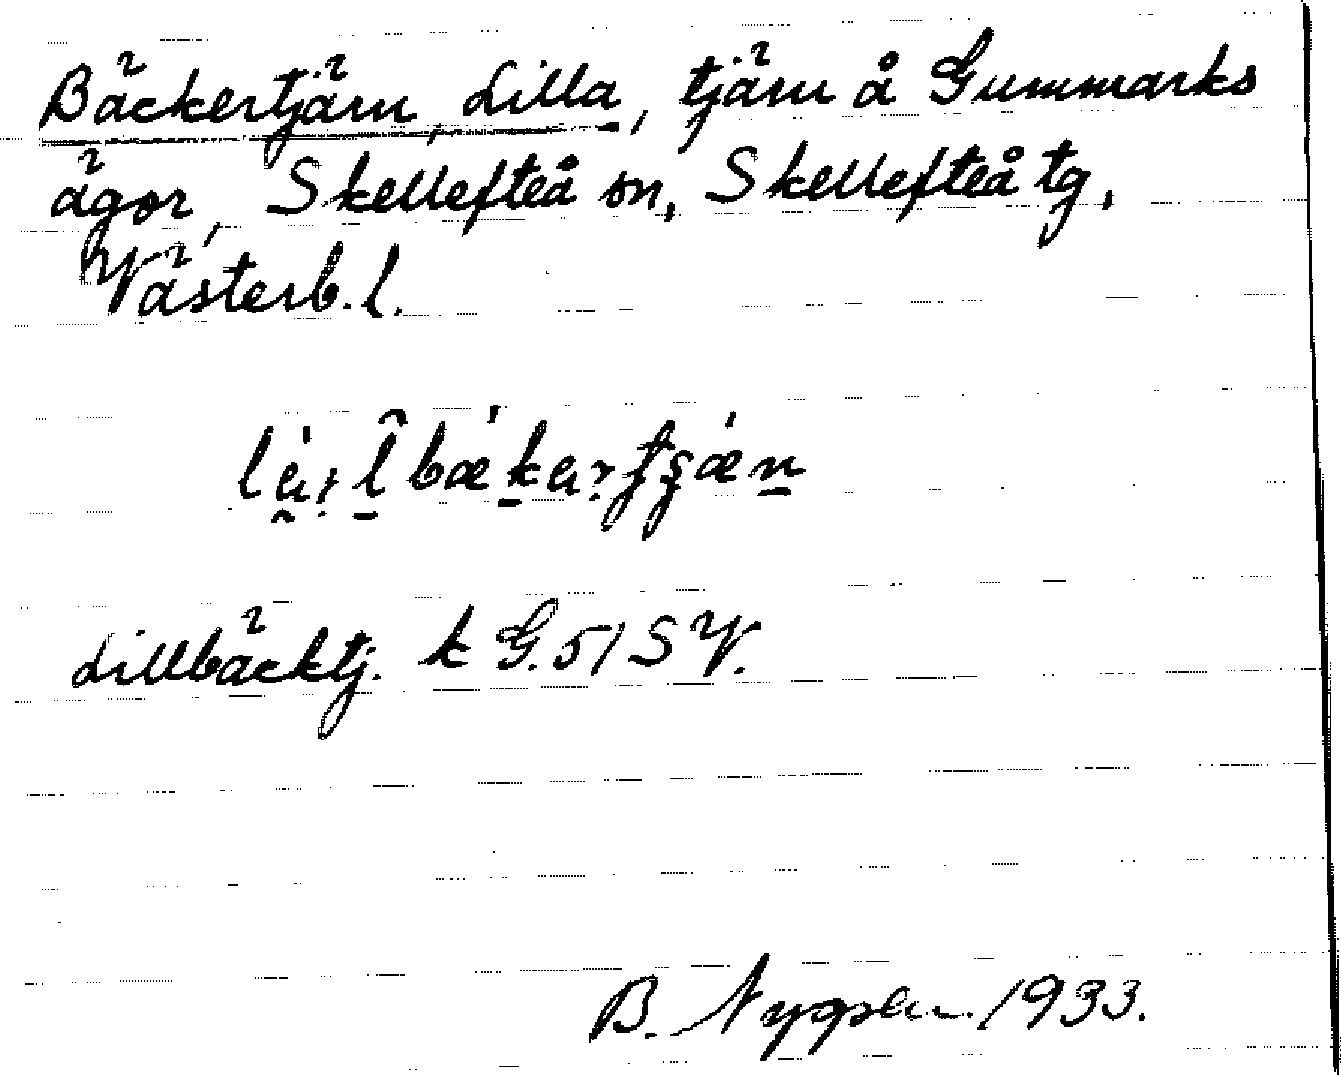 Bäckertjärn, Lilla, tjärn å Gummarks
ägor, Skellefteå sn, Skellefteå tg,
Västerb. l.
Lillbäcktj. k G. 51 SV.
B. 1933.